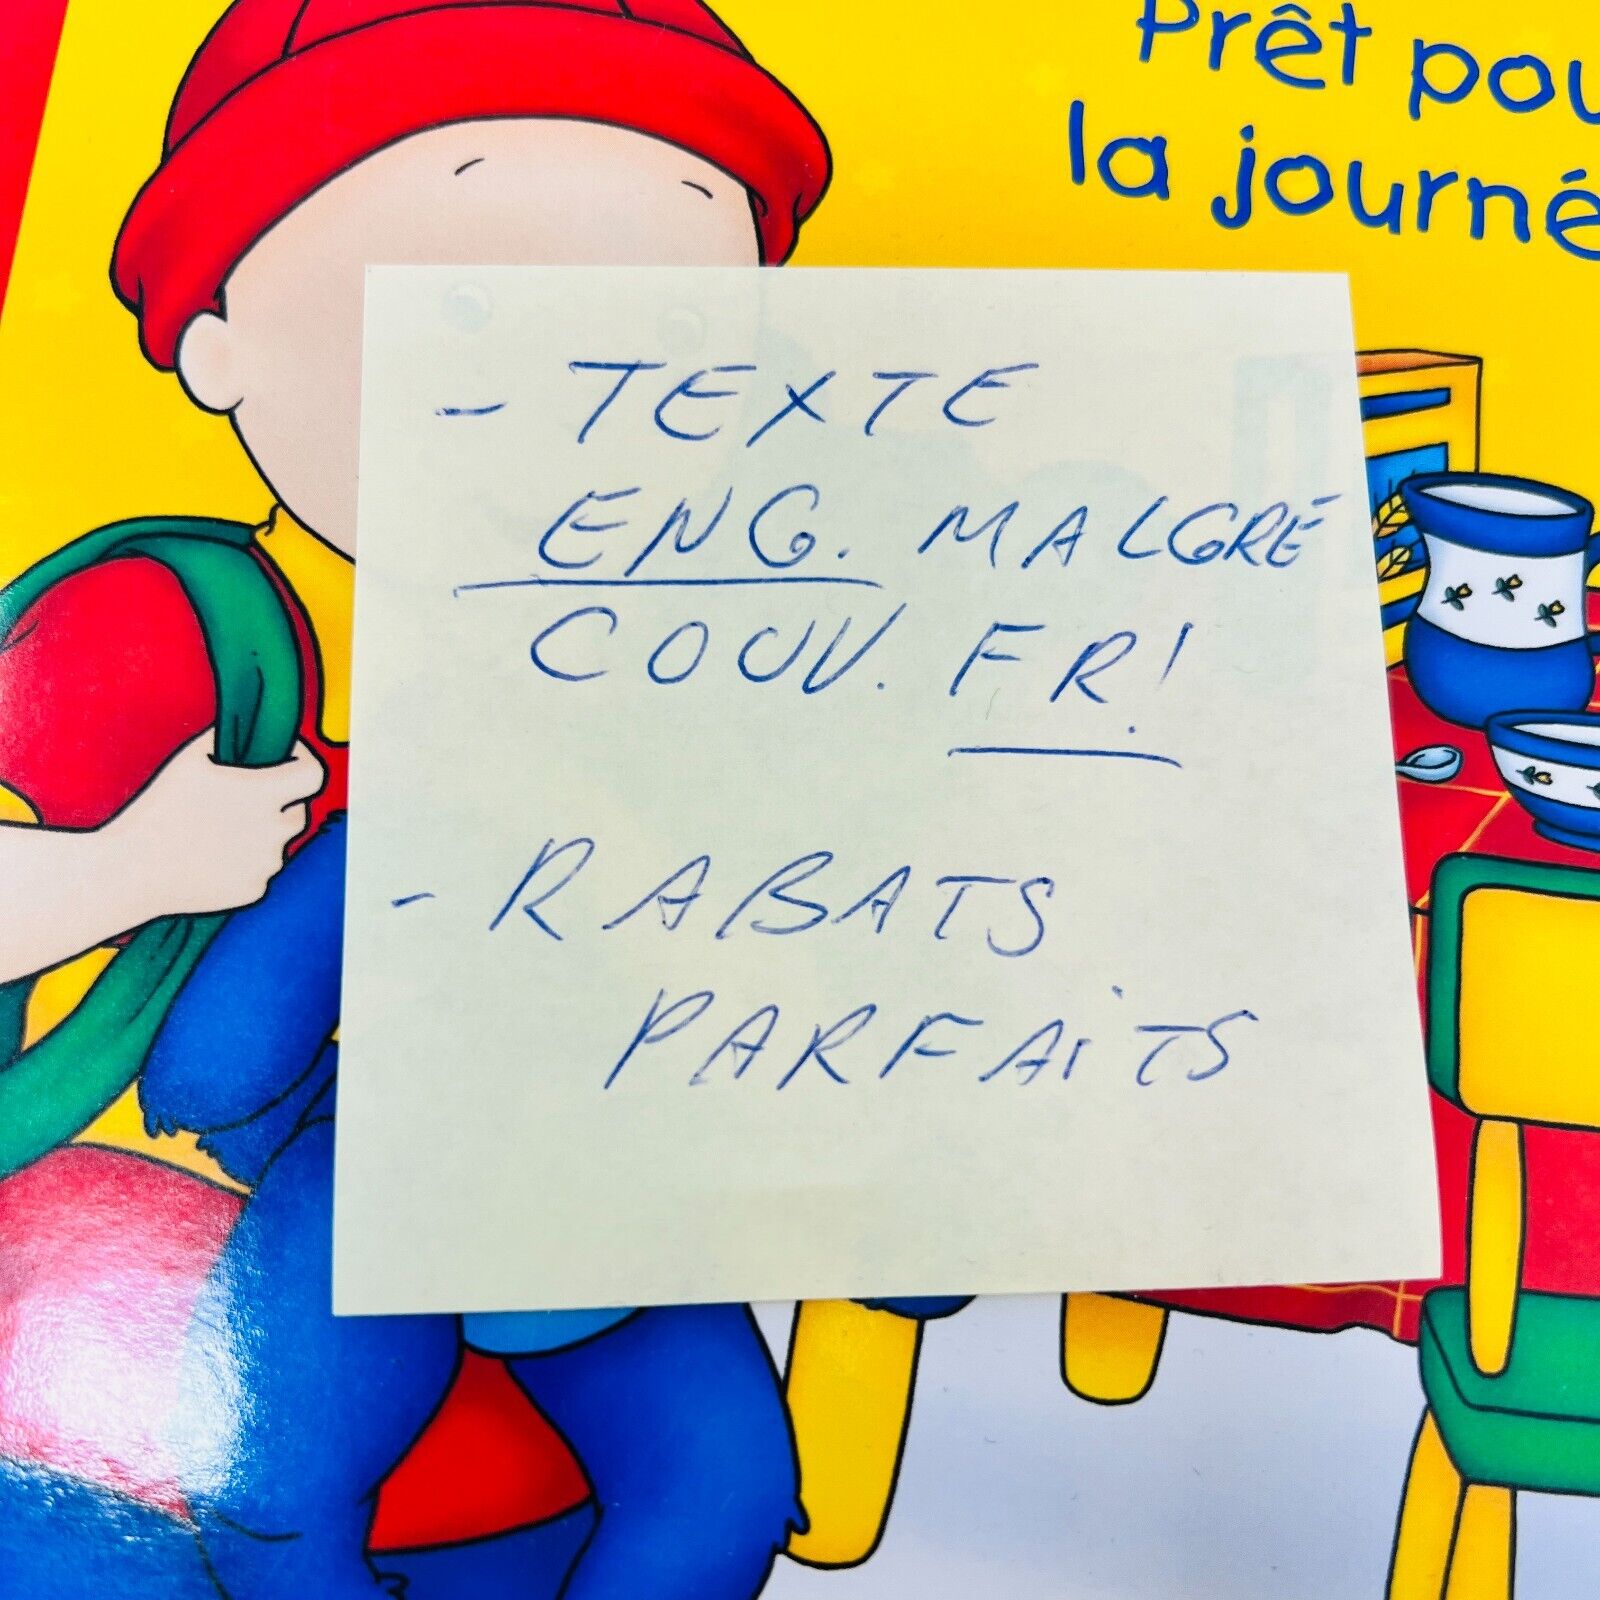 Prêt pou
la journé
- TEXTE
ENG. MALGRÉ
COUV. FR!
- RABATS
PARFAiTS